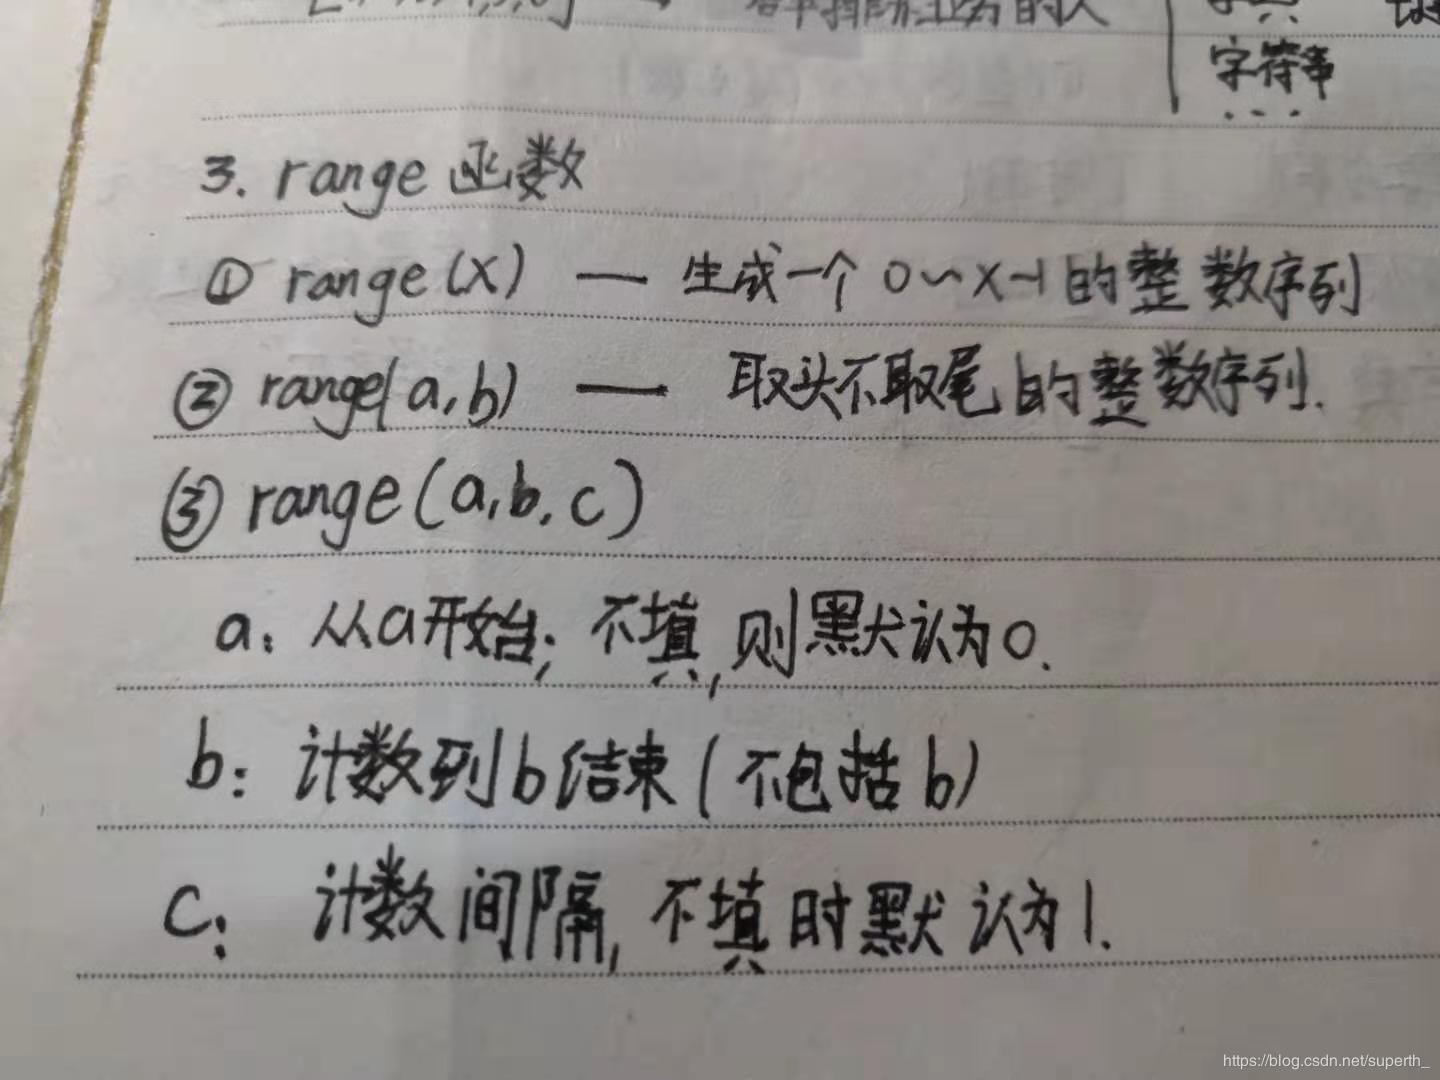 字符串
...
3. range 函数
① range(x) — 生成一个 0~x-1 的整数序列
② range(a,b) — 取头不取尾的整数序列.
③ range(a,b,c)
a: 从a开始; 不填,则默认为0.
b: 计数到b结束(不包括b)
c: 计数间隔,不填时默认为1.
https://blog.csdn.net/superth_